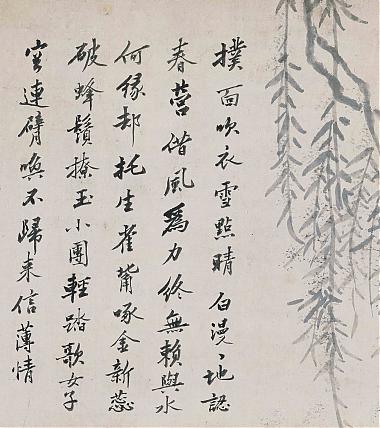 撲面吹衣雪點晴白漫々地認
春營借風爲力終無賴與水
何緣却托生雀觜啄金新蕊
破蜂鬚捺玉小團輕踏歌女子
空連臂喚不歸來信薄情